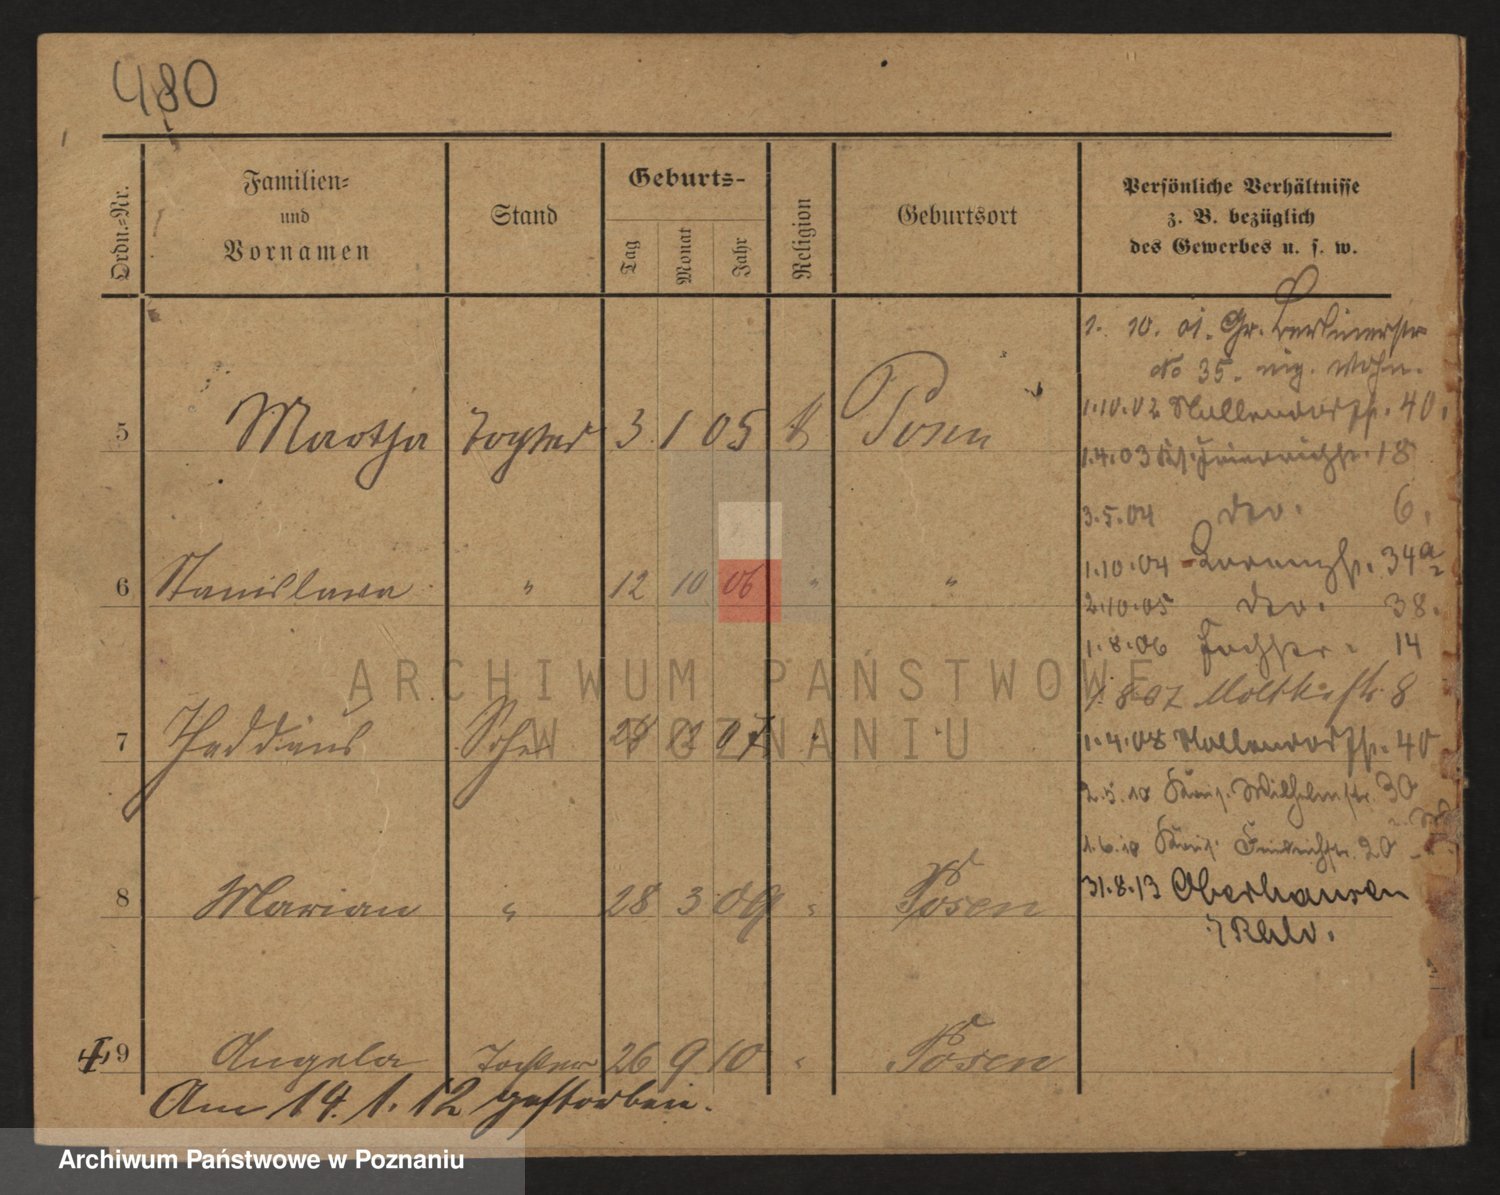 480
Ordn.-Nr.
Familien-
und
Vornamen
Stand
Geburts-
Tag
Monat
Jahr
Religion
Geburtsort
Persönliche Verhältnisse
z. B. bezüglich
des Gewerbes u. s. w.
5 Martha Tochter 3 1 05 k Posen
6 Stanislawa " 12 10 06 " "
7 Thaddäus Sohn 28 07 " "
8 Marian " 28 3 09 " Posen
9 Angela Tochter 26 9 10 " Posen
Am 14. 1. 12 gestorben.
1. 10. 01. Gr. Berlinerstr
No 35. Wohn.
1.10.02 Hallendorffstr. 40.
1.4.03 18
3.5.04 dto. 6.
1.10.04 34a
2.10.05 dto. 38.
1.8.06 14
1.8.07 Moltkestr. 8
1.4.08 40
2.5.10 Wilhelmstr. 30
1.6.10 20
31.8.13 Oberhausen
/Rhld.
ARCHIWUM PAŃSTWOWE
W POZNANIU
Archiwum Państwowe w Poznaniu